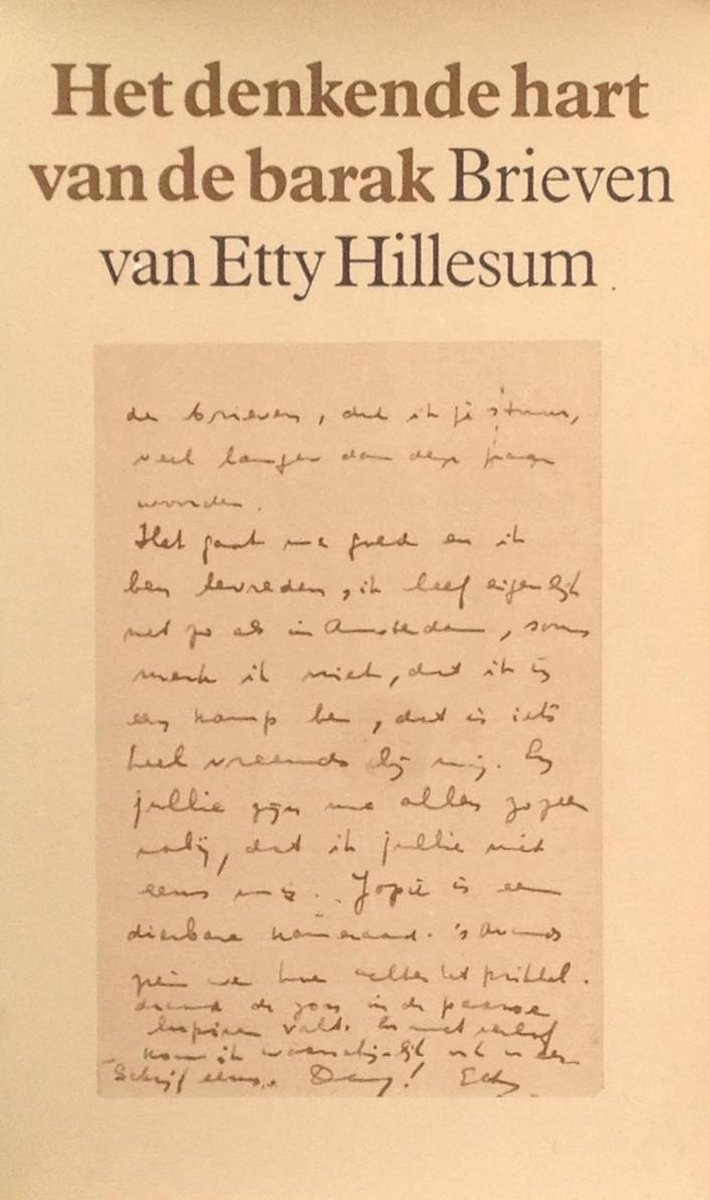 Het denkende hart
van de barak Brieven
van Etty Hillesum
de brieven, dat ik je stuur,
veel langer dan deze paar
woorden.
Het gaat me goed en ik
ben tevreden, ik leef eigenlijk
net zo als in Amsterdam, soms
merk ik niet, dat ik in
een kamp ben, dat is iets
heel vreemds bij mij. En
jullie zijn me allen zozeer
nabij, dat ik jullie niet
eens mis. Jopie is een
dierbare kameraad. 's Avonds
zien we hoe achter het prikkel.
draad de zon in de paarse
lupinen valt. En met verlof
kom ik waarschijnlijk ook weer
Schrijf eens. Dag! Etty